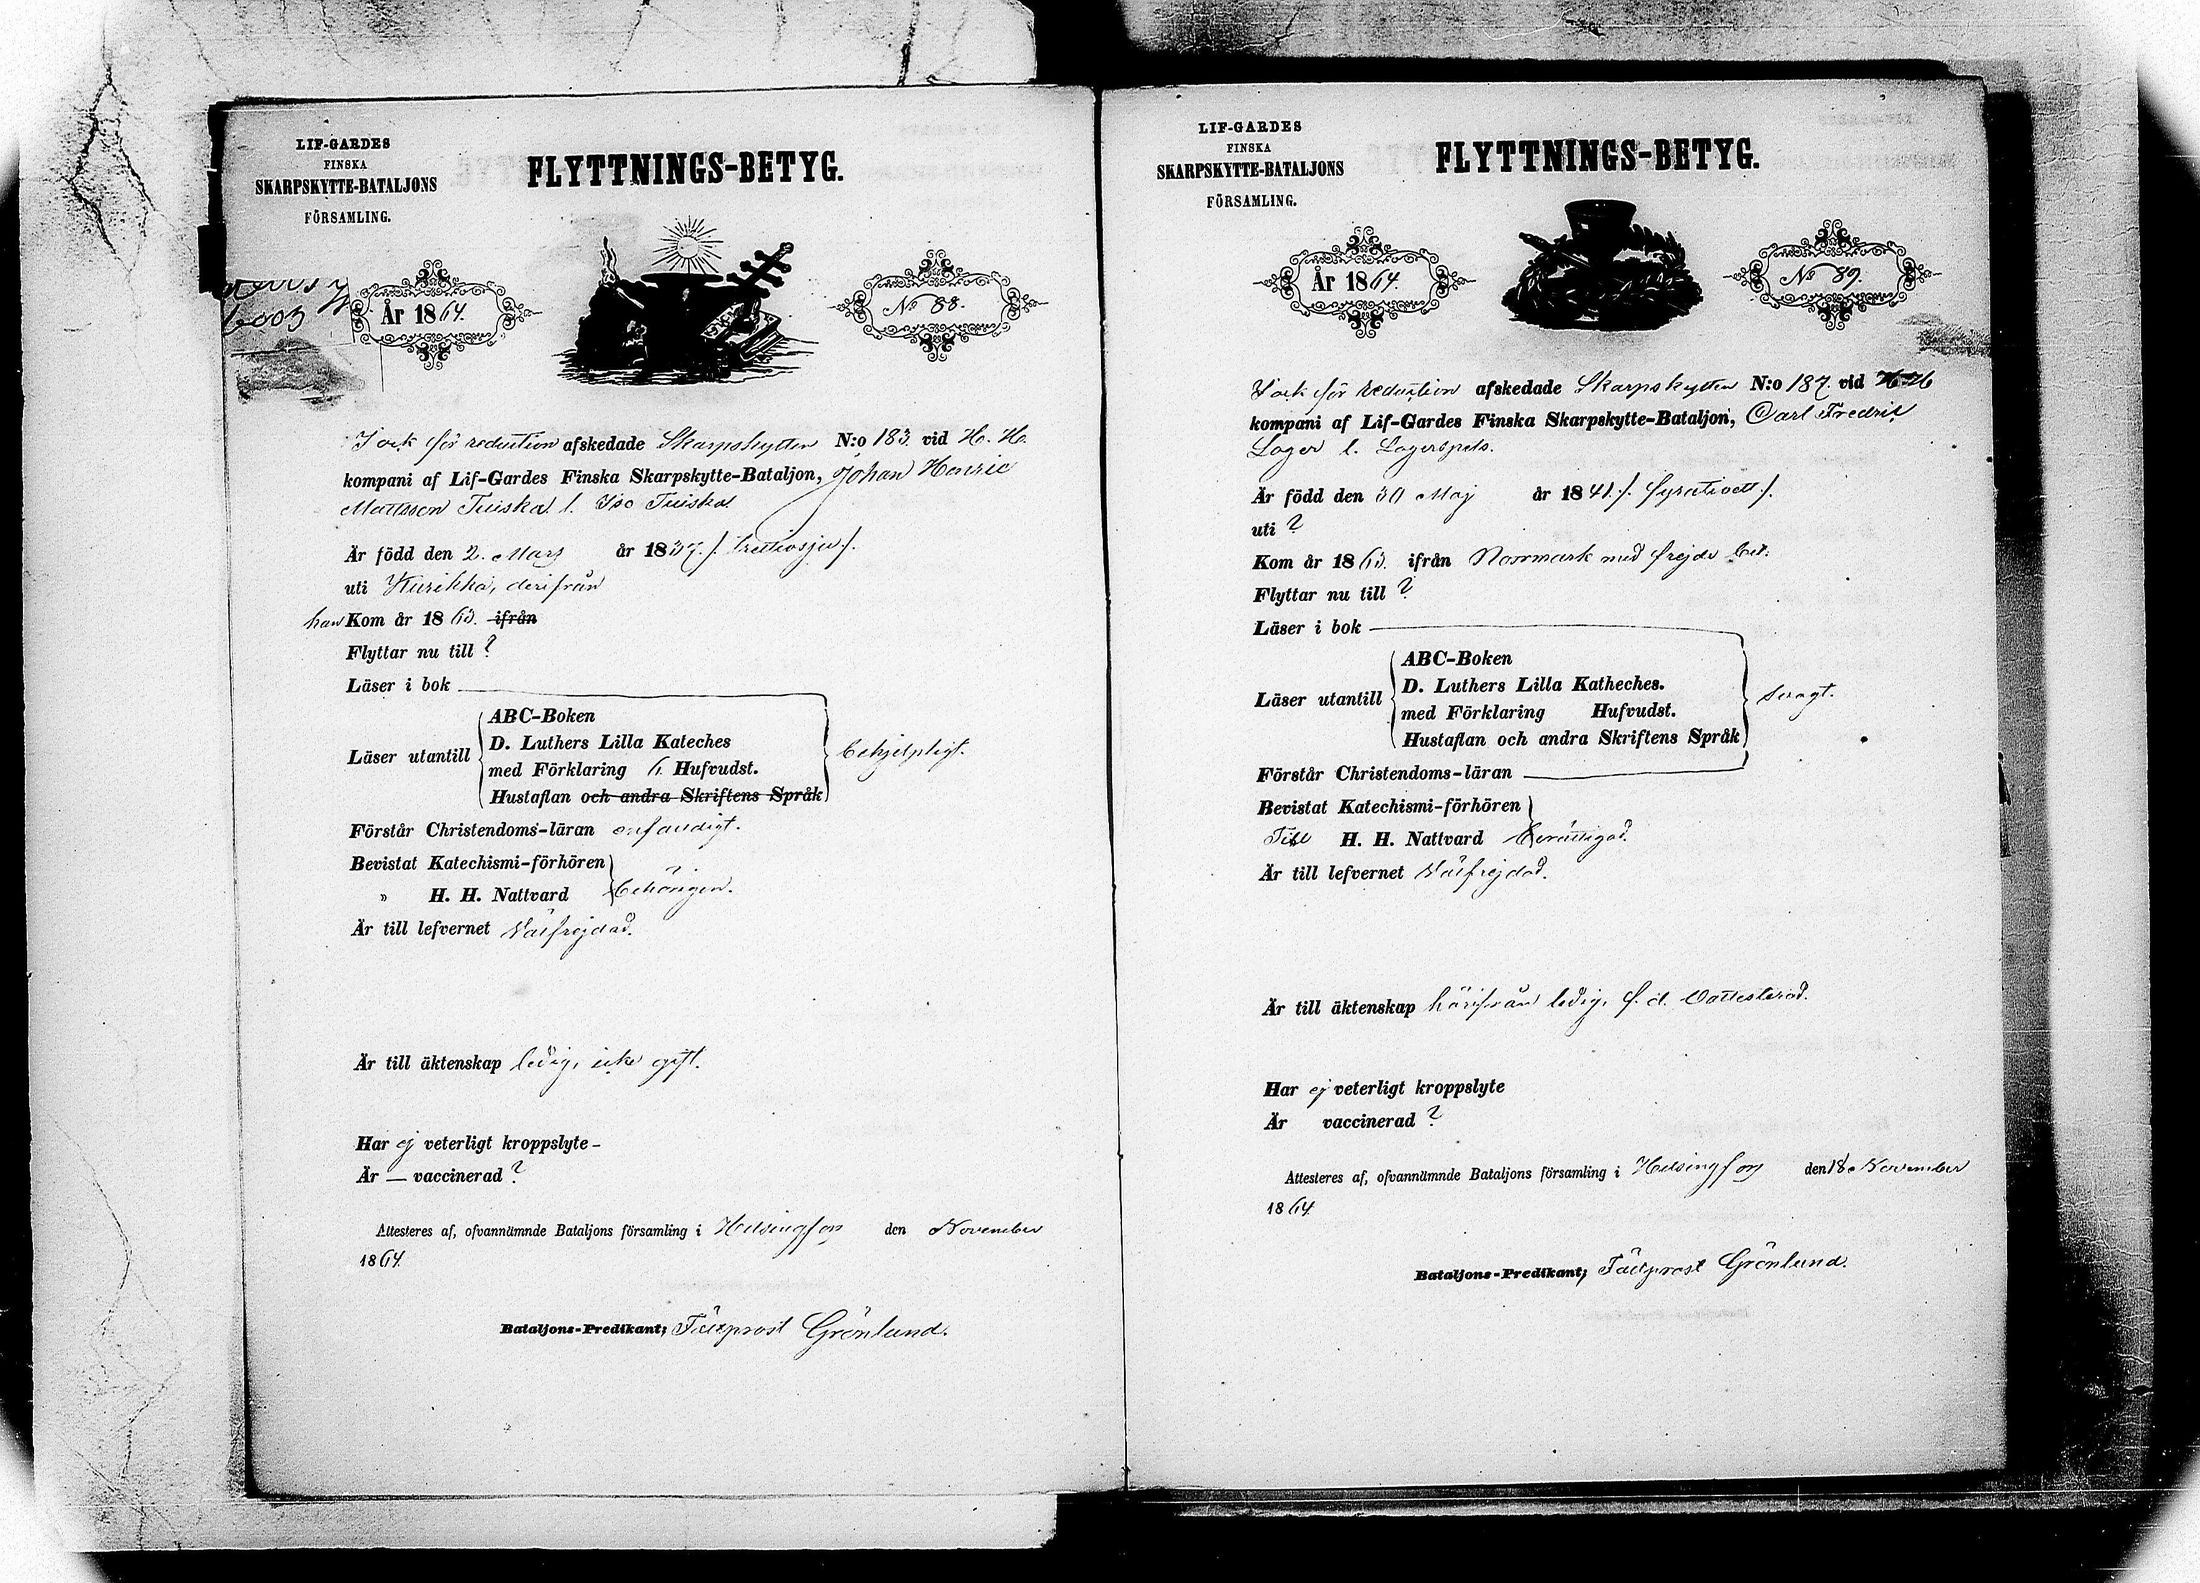 LIF-GARDES
FINSKA
SKARPSKYTTE-BATALJONS
FÖRSAMLING.
FLYTTNINGS-BETYG.
År 1864.
No 88.
för reduction afskedade Skarpskytten N:o 183. vid H. H.
kompani af Lif-Gardes Finska Skarpskytte-Bataljon, Johan Henric
Mattsson Tuiska l. Iso Tuiska
Är född den 2. Mars år 1837. /. trettiosju /.
uti Kurikka, derifrån
han Kom år 1863. ifrån
Flyttar nu till ?
Läser i bok
Läser utantill
ABC-Boken
D. Luthers Lilla Kateches
med Förklaring 6. Hufvudst.
Hustaflan och andra Skriftens Språk
behjelpligt.
Förstår Christendoms-läran enfaldigt.
Bevistat Katechismi-förhören
» H. H. Nattvard behörigen.
Är till lefvernet Välfrejdad.
Är till äktenskap ledig, icke gift.
Har ej veterligt kroppslyte –
Är — vaccinerad ?
Attesteres af, ofvannämnde Bataljons församling i Helsingfors den November
1864.
Bataljons-Predikant; Fältprost Grönlund.
LIF-GARDES
FINSKA
SKARPSKYTTE-BATALJONS
FÖRSAMLING.
FLYTTNINGS-BETYG.
År 1864.
No 89.
för reduction afskedade Skarpskytten N:o 187. vid H. H.
kompani af Lif-Gardes Finska Skarpskytte-Bataljon, Carl Fredric
Lager l. Lagerspets.
Är född den 30 Maj år 1841. /. fyratioett /.
uti ?
Kom år 1863. ifrån Norrmark med frejde bet.
Flyttar nu till ?
Läser i bok
Läser utantill
ABC-Boken
D. Luthers Lilla Katheches.
med Förklaring Hufvudst.
Hustaflan och andra Skriftens Språk
svagt.
Förstår Christendoms-läran
Bevistat Katechismi-förhören
Till H. H. Nattvard berättigad.
Är till lefvernet Välfrejdad.
Är till äktenskap härifrån ledig,
Har ej veterligt kroppslyte
Är vaccinerad ?
Attesteres af, ofvannämnde Bataljons församling i Helsingfors den 18 November
1864
Bataljons-Predikant; Fältprost Grönlund.